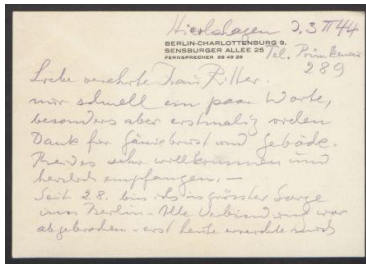 Hierlshagen d. 3. II 44
BERLIN-CHARLOTTENBURG 9,
SENSBURGER ALLEE 25
FERNSPRECHER 99 49 29
Tel. Primkenau
289
Liebe verehrte Frau Ritter.
nur schnell ein paar Worte,
besonders aber erstmalig vielen
Dank für Gänsebrust und Gebäck.
Beides sehr willkommen und
herzlich empfangen. —
Seit 28. bis in grösster Sorge
um Berlin – Alle Verbindung war
abgebrochen – erst heute